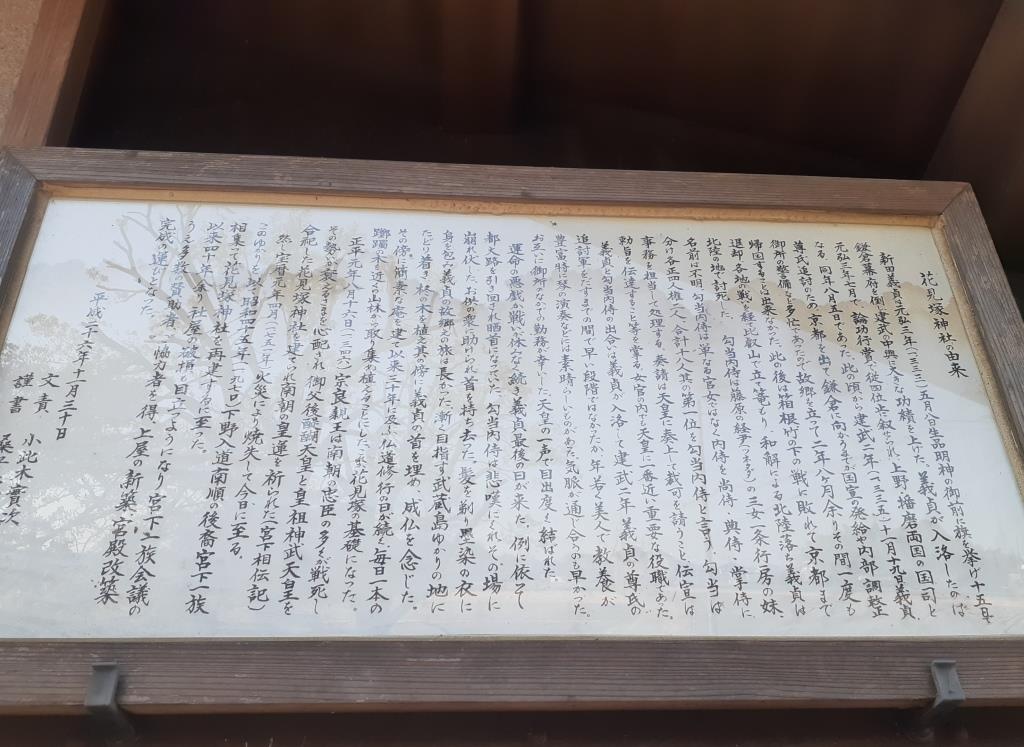 花見塚神社の由来
新田義貞は元弘三年(一三三三)五月八日生品明神の御前に旗を挙げ十五日で
鎌倉幕府を倒し建武の中興に大きな功績を上げた。義貞が入洛したのは
元弘三年七月で、論功行賞で従四位に叙せられ、上野、播磨両国の国司と
なる。同年八月五日であった。此の頃から建武二年(一三三五)十一月十九日義貞、
尊氏追討のため、京都を出て鎌倉に向かうまでが国宣の発給や内部調整
御所の警備等多忙にあたって故郷を立って二年八ヶ月余りその間一度も
帰国することは出来なかった。此の後は箱根竹の下の戦に敗れて京都まで
退却、各地の戦いを経て比叡山で立て篭もり、和解による北陸落ち義貞は
北陸の地で討死した。 勾当内侍は藤原の経尹(ツネタダ)の三女一条行房の妹、
名前は不明、勾当の侍は単なる官女ではなく内侍を尚侍、典侍、掌侍に
分け各正四人権二人、合計十八人其の第一位を勾当内侍と言う。勾当は
事務を担当して処理する。奏請は天皇に奏上して裁可を請うこと、伝宣は
勅旨を伝達すること等を掌る。女官の内でも天皇に一番近い重要な役職であった。
義貞と勾当内侍の出合いは義貞が入洛して建武二年義貞の尊氏の
追討軍をだすまでの間で早い段階ではなかったか、年若く美人で教養が
豊富特に琴の演奏などには素晴らしいものがあった。気脈が通じ合うのも早かった。
お互いに御所のなかでの勤務が幸いした天皇の一声で目出度く結ばれた。
運命の悪戯か戦いは休みなく続き義貞最後の日が来た。例に依って
都大路を引き回され晒首になっていた。勾当内侍は悲嘆にくれその場に
崩れ伏した。お供の衆に助けられ首を持ち去った。髪を剃り黒染の衣に
身を包み義貞の故郷への旅は長かった。漸く目指す武蔵島ゆかりの地に
たどり着き一林の木を植え其の傍に義貞の首を埋め、成仏を念じた。
その傍に簡素な庵を建て以来二十年に及ぶ仏道修行の日が続き毎日一本の
躑躅の木を近くの山林から取り集め植えることにした。これが花見塚の基礎になった。
正平元年八月六日(一三四六)宗良親王は南朝の忠臣の多くが戦死し
その勢いが衰えるさまを心配され、御父後醍醐天皇と皇祖神武天皇を
合祀した花見塚神社を建てられ南朝の皇運を祈られた(宮下相伝記)
然し宝暦元年四月(一七五一)火災により焼失して今日に至る。
このゆかりを以って昭和四五年(一九七〇)下野入道南順の後裔宮下一族
相集って花見塚神社を再建するに至った。
以来四十年余り社屋の破損が目立つようになり宮下一族会議の
うえ多数の賛助者、協力者を得、上屋の新築、宮殿改築
完成の運びとなった。
平成二六年十一月三十日
文責 小此木實次
謹書